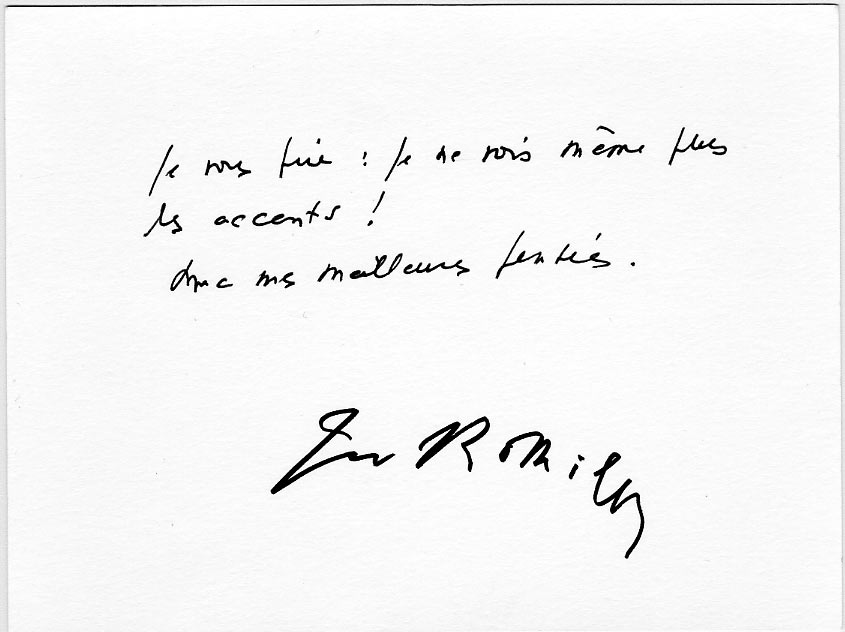 Je vous prie : je ne vois même plus
les accents !
Avec mes meilleures pensées.
J. de Romilly